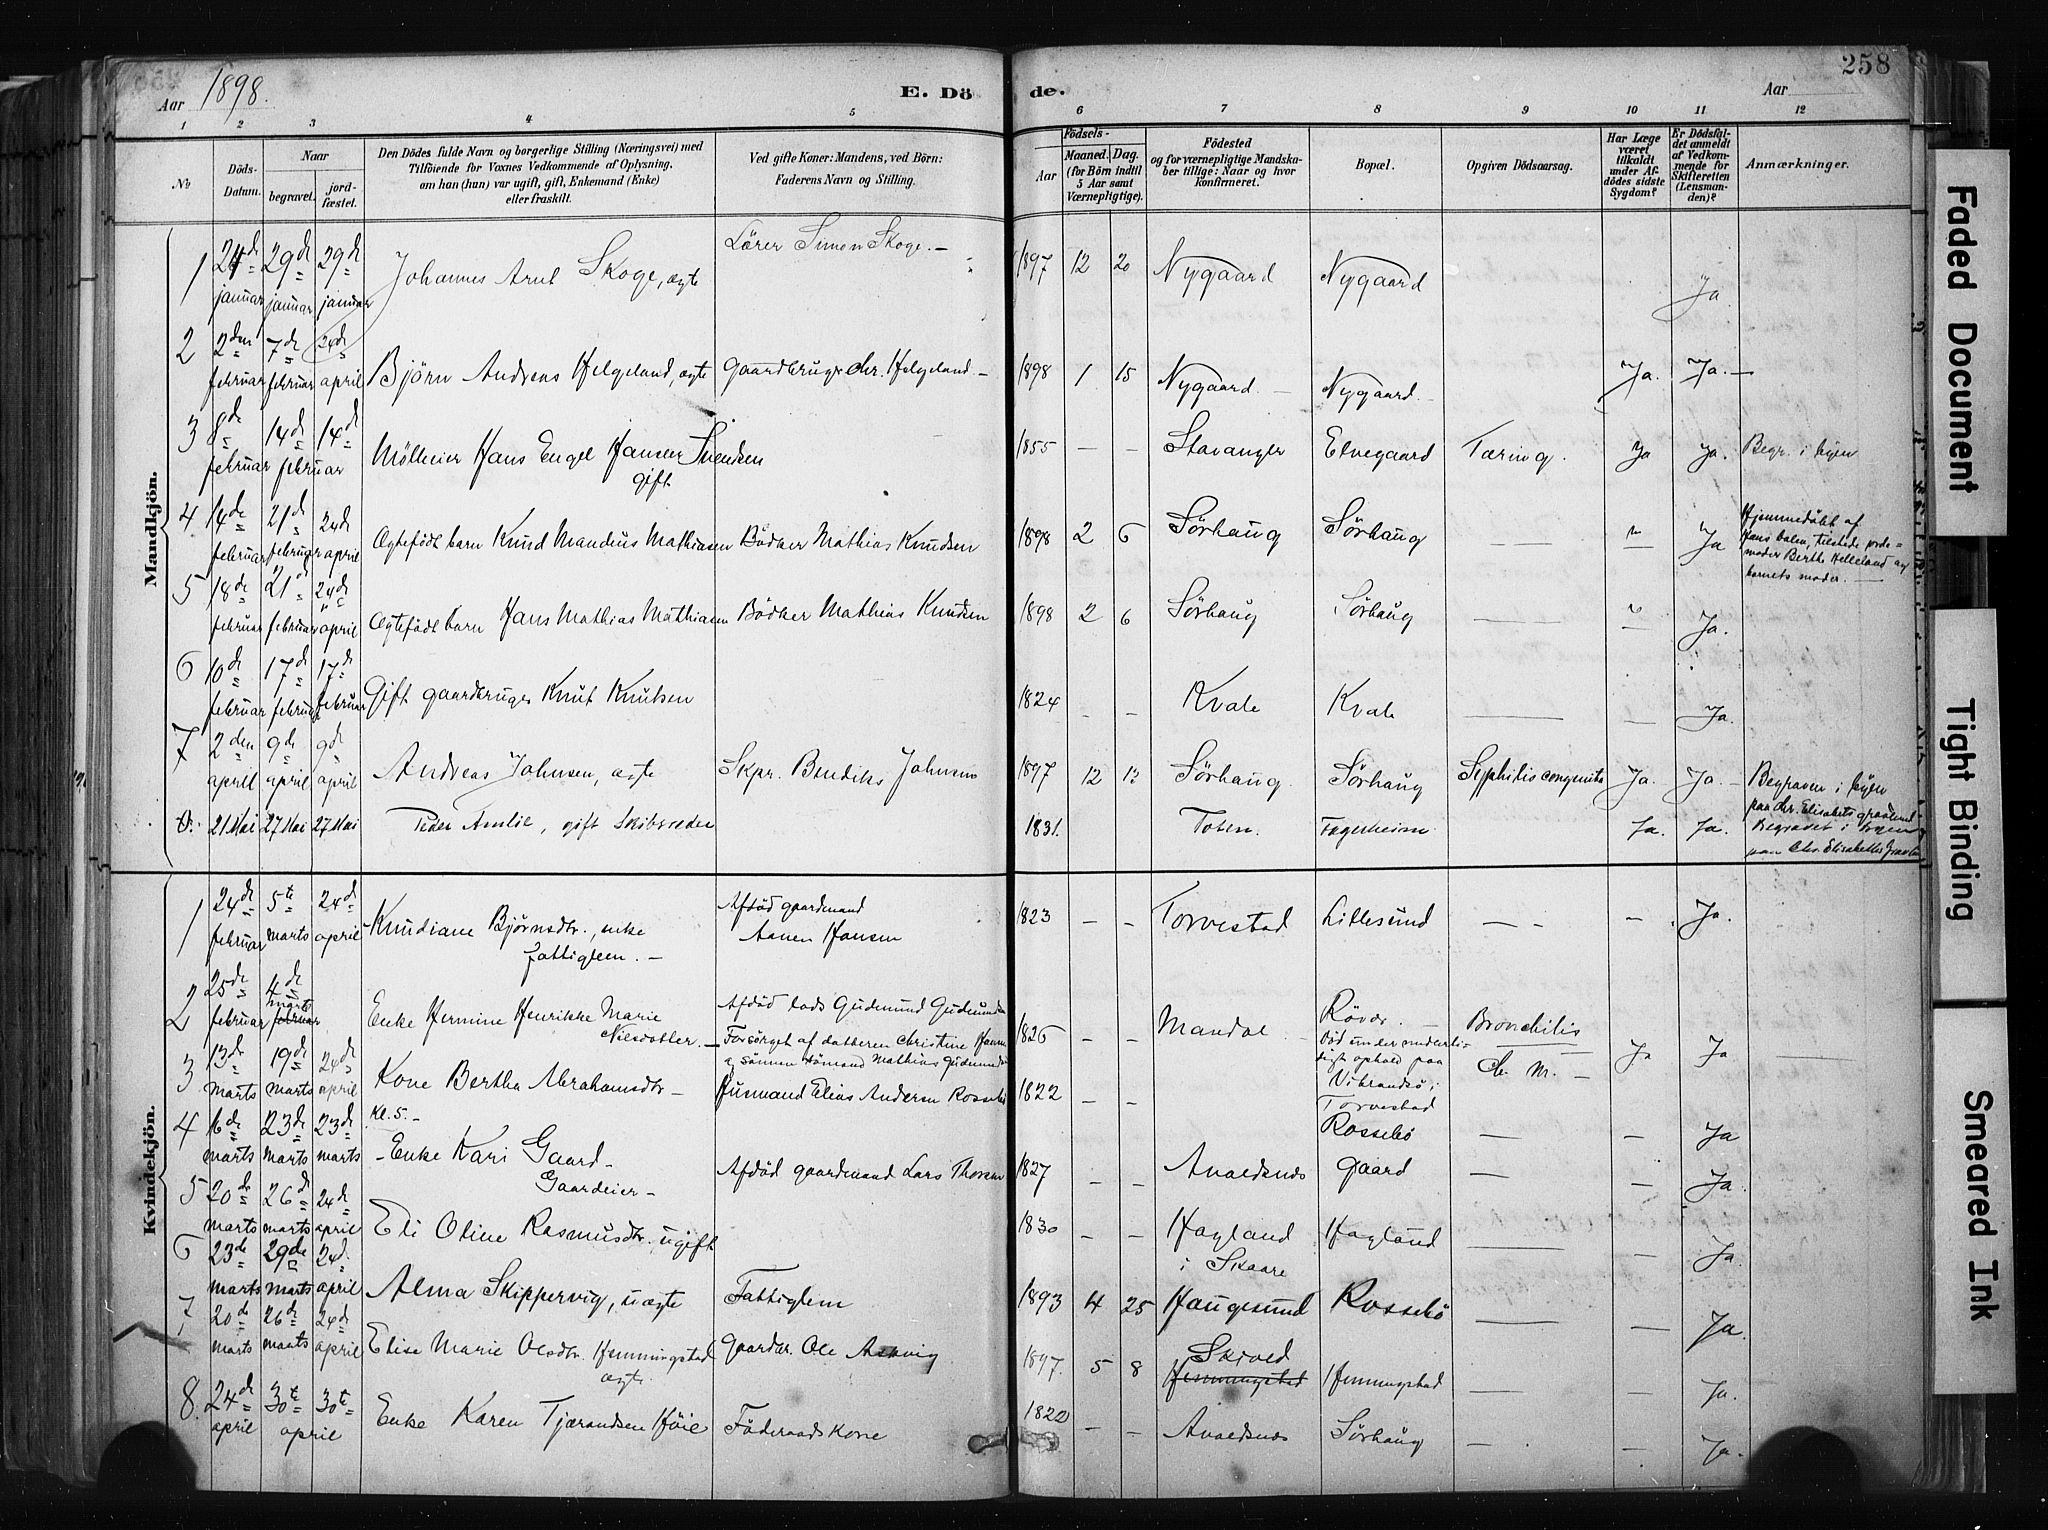 258
Aar 1898.
E. Dö de.
Aar
1 2 3 4 5 6 7 8 9 10 11 12
No
Döds-Datum.
Naar
begravet.
jord-fæstet.
Den Dödes fulde Navn og borgerlige Stilling (Næringsvei) med
Tilföiende for Voxnes Vedkommende af Oplysning,
om han (hun) var ugift, gift, Enkemand (Enke)
eller fraskilt.
Ved gifte Koner: Mandens, ved Börn:
Faderens Navn og Stilling.
Födsels-
Aar
Maaned. Dag.
(for Börn indtil
5 Aar samt
Værnepligtige).
Födested
og for værnepligtige Mandska-
ber tillige: Naar og hvor
konfirmeret.
Bopæl.
Opgiven Dödsaarsag.
Har Læge
været
tilkaldt
under Af-
dödes sidste
Sygdom?
Er Dödsfal-
det anmeldt
af Vedkom-
mende for
Skifteretten
(Lensman-
den)?
Anmærkninger.
Mandkjön.
1 24de januar 29de januar 29de januar Johannes Arnt Skoge, ægte Lærer Simon Skoge. 1897 12 20 Nygaard Nygaard Ja
2 2den februar 7de februar 24de april Björn Andreas Helgeland, ægte Gaardbruger Chr. Helgeland 1898 1 15 Nygaard Nygaard Ja. Ja.
3 8de februar 14de februar 14de Mölleeier Hans Engel Svendsen
gift
1855 Stavanger Elvegaard Tæring. Ja Ja. Begr. i byen
4 14de februar 21de februar 24de april Ægtefödt barn Knud Mandius Mathiasen Bödker Mathias Knudsen 1898 2 6 Sörhaug Sörhaug Ja
Hjemmedöbt af
Hans Dalen, tilstede jorde=
moder Berthe Helleland og
barnets moder.
5 18de februar 21de februar 24de april Ægtefödt barn Hans Mathias Mathiasen Bödker Mathias Knudsen 1898 2 6 Sörhaug Sörhaug Ja.
6 10de februar 17de februar 17de februar Gift gaardbruger Knut Knutsen 1824 Kvale Kvale Ja.
7 2den april 9de april 9de april Andreas Johnsen, ægte Skpr. Bendiks Johnsen 1897 12 13 Sörhaug. Sörhaug Syphilis congenita Ja. Ja.
Begraven i byen
paa Chr. Elisabets gravlund
8. 21 Mai 27 Mai 27 Mai Peder Amlie, gift Skibsreder 1831. Toten. Fagerheim Ja. Ja.
Begravet i byen
paa Chr. Elisabeths gravlund
Kvindekjön.
1 24de februar 5te marts 24de april Knudiane Bjørnsdtr., enke
fattiglem.
Afdöd gaardmand
Aanen Hansen
1823 Torvestad Lillesund Ja.
2 25de februar 4de marts februar Enke Hermine Henrikke Marie
Nilsdatter.
Afdöd lods Gudmund Gudmundsen
Forsörget af datteren Christine Hansen
og sönnen sömand Mathias Gudmundsen
1826 Mandal
Rövær.
Död under
ophold paa
Vibrandsö i
Torvestad
Bronchitis
Ch. M. Ja Ja
3 13de marts 19de marts 24de april Kone Bertha Abrahamsdtr Husmand Elias Andersen Rossebö 1822 Rossebö Ja
Kl. 5.
4 16de marts 23de marts 23de marts Enke Kari Gaard
Gaardeier
Afdöd gaardmand Lars Thorsen 1827 Avaldsnæs Gaard Ja.
5 20de marts 26de marts 24de april Eli Oline Rasmusdtr. ugift 1830 Hagland
i Skaare
Hagland Ja.
6 23de marts 29de marts 24de april Alma Skippervig, uægte Fattiglem 1893 4 25 Haugesund Rossebö Ja.
7 20de marts 26de marts 24de april Elise Marie Olsdtr. Hemmingstad
ægte.
Gaardbr. Ole Aasvig 1897. 5 8 Skjold
Hemmingstad Hemmingstad Ja.
8. 24de april 30te april 30te Enke Karen Tjærandsen Höie Föderaadskone 1822 Avaldsnæs Sörhaug Ja.
Faded Document
Tight Binding
Smeared Ink